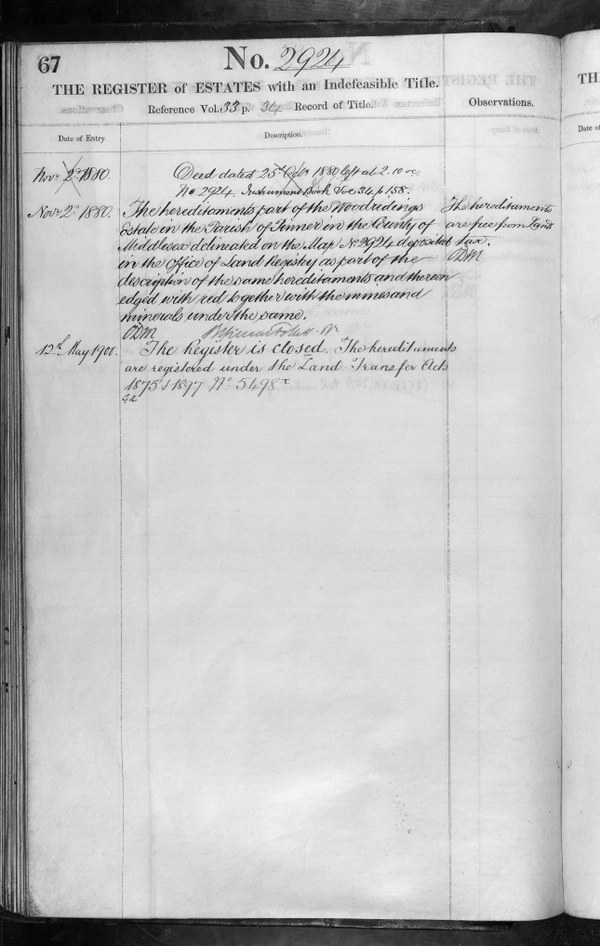 67
No. 2924
THE REGISTER of ESTATES with an Indefeasible Title.
Reference Vol. 33 p. 34 Record of Title.
Observations.
Date of Entry.
Description.
Novr 2d 1880.
Deed dated 25th Octr 1880 left at 2.10 oc
No 2924. Instrument Book Vol 34 p 158.
Novr 2d 1880.
The hereditaments part of the Woodridings
Estate in the Parish of Pinner in the County of
Middlesex delineated on the Map No 2924 deposited
in the Office of Land Registry as part of the
description of the same hereditaments and thereon
edged with red together with the mines and
minerals under the same.
The hereditaments
are free from Land
tax.
12th May 1900.
The Register is closed. The hereditaments
are registered under the Land Transfer Acts
1875 & 1897 No 5498
THE
Date of